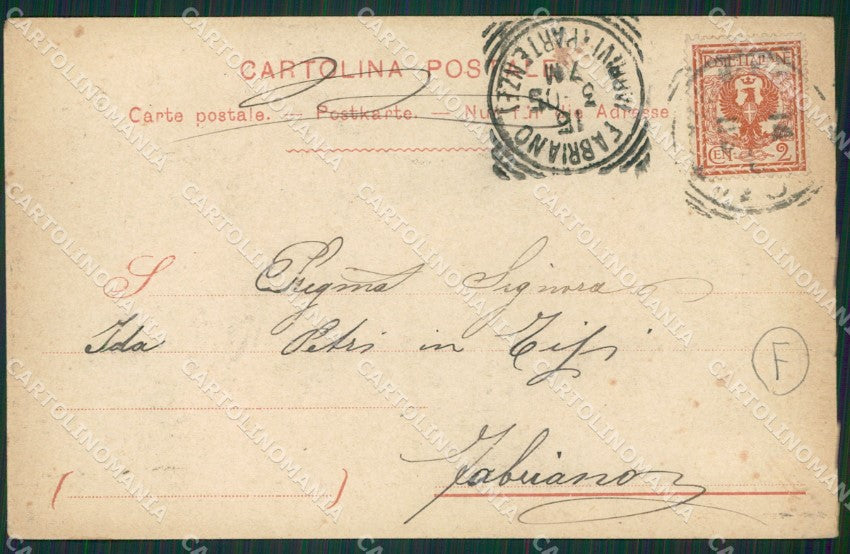 CARTOLINA POSTALE
Carte postale. — Postkarte. — Nur für die Adresse
FABRIANO
ARRIVI E PARTENZE
15
3
7 M
POSTE ITALIANE
CEN. 2
S Pregma Signora
Ida Petri in Tisi
Fabriano
( )
F
CARTOLINOMANIA